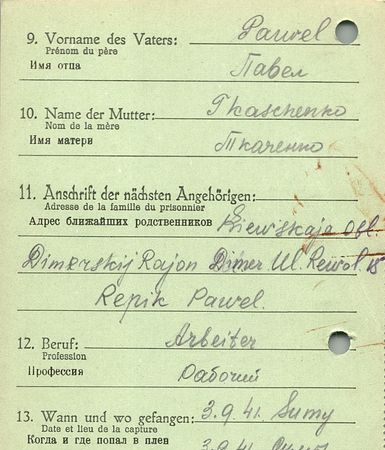 9. Vorname des Vaters: Pawel
Prénom du père
Имя отца Павел
10. Name der Mutter: Tkaschenko
Nom de la mère
Имя матери Ткаченко
11. Anschrift der nächsten Angehörigen:
Adresse de la famille du prisonnier
Адрес ближайших родственников Kiewskaja Obl.
Dimerskij Rajon Dimer Ul. Rewol. 18
Repik Pawel.
12. Beruf: Arbeiter
Profession
Профессия Рабочий
13. Wann und wo gefangen: 3.9.41. Sumy
Date et lieu de la capture
Когда и где попал в плен 3.9.41.